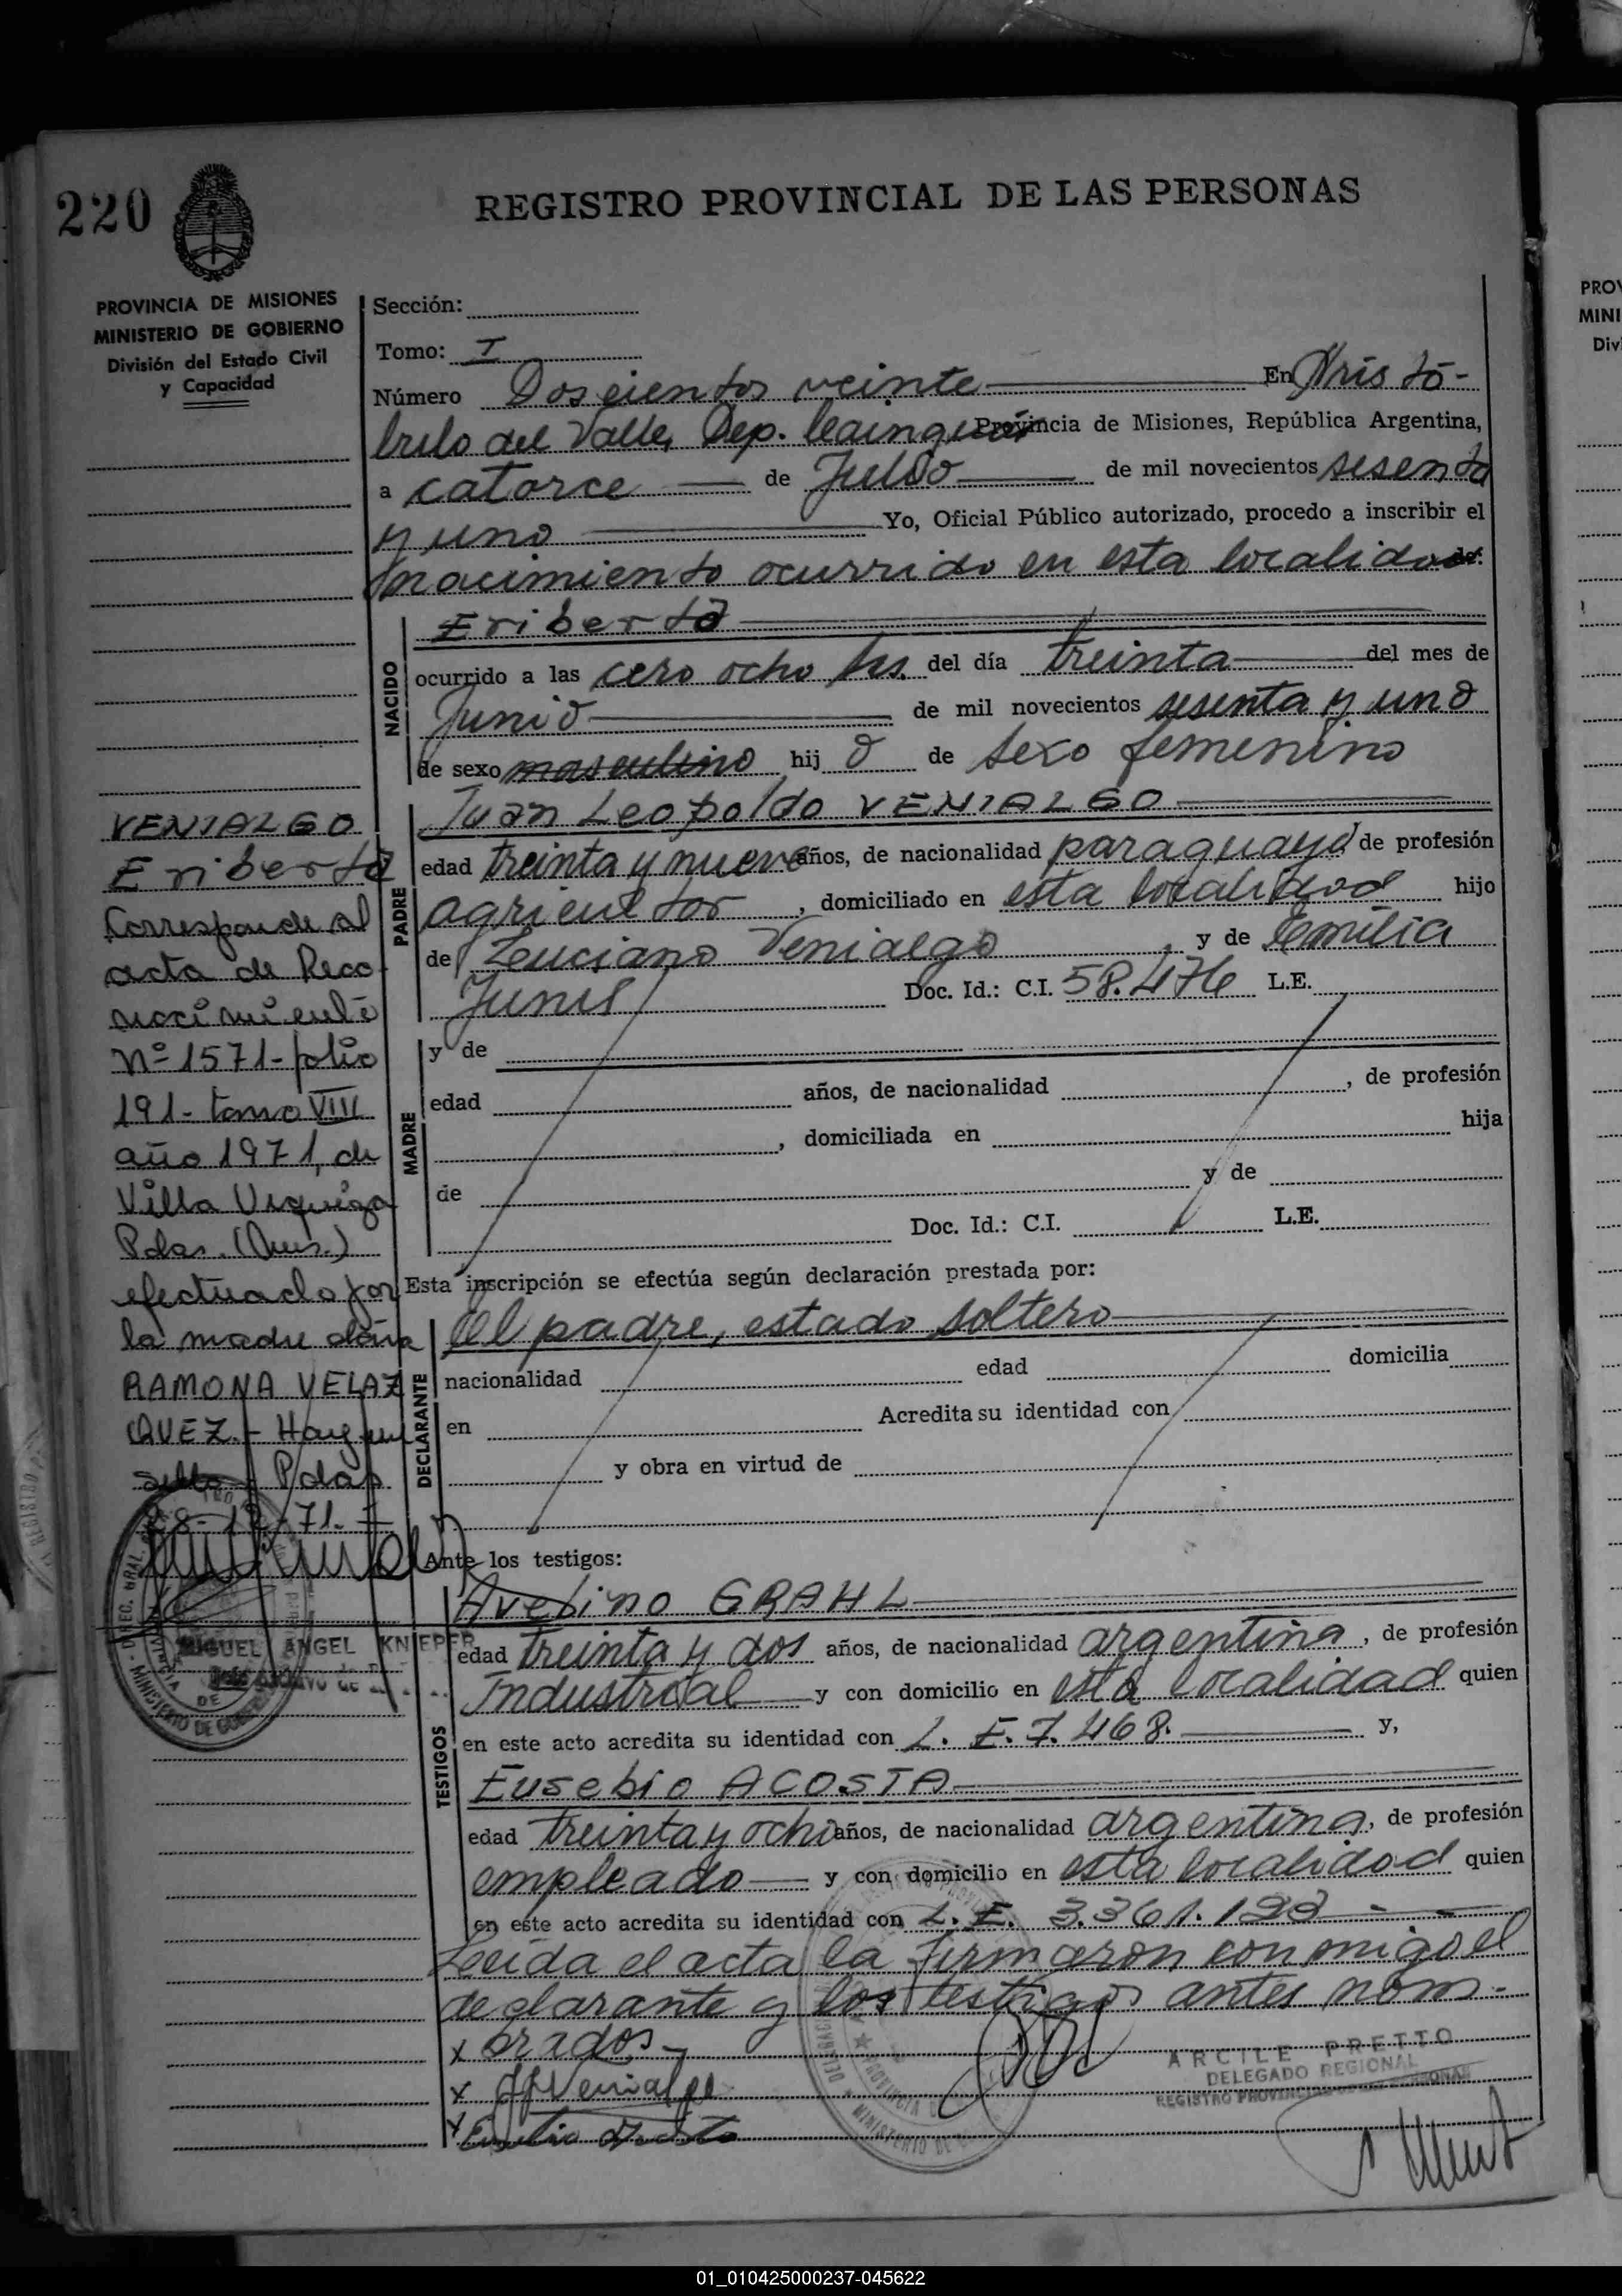 220
REGISTRO PROVINCIAL DE LAS PERSONAS
PROVINCIA DE MISIONES
MINISTERIO DE GOBIERNO
División del Estado Civil
y Capacidad
Sección:
Tomo: I
Número Doscientos veinte En Aristó-
bulo del Valle, Dep. Cainguás Provincia de Misiones, República Argentina,
a catorce de Julio de mil novecientos sesenta
y uno Yo, Oficial Público autorizado, procedo a inscribir el
nacimiento ocurrido en esta localidad de:
NACIDO
Eriberta
ocurrido a las cero ocho hs. del día treinta del mes de
Junio de mil novecientos sesenta y uno
de sexo masculino hijo de sexo femenino
PADRE
Juan Leopoldo VENIALGO
edad treinta y nueve años, de nacionalidad paraguayo de profesión
agricultor, domiciliado en esta localidad hijo
de Leuciano Venialgo, y de Emilia
Junis Doc. Id.: C.I. 58.476 L.E.
MADRE
y de
edad años, de nacionalidad, de profesión
, domiciliada en hija
de y de
Doc. Id.: C.I. L.E.
Esta inscripción se efectúa según declaración prestada por:
DECLARANTE
El padre, estado soltero
nacionalidad edad domicilia
en Acredita su identidad con
y obra en virtud de
Ante los testigos:
TESTIGOS
Avelino GRAHL
edad treinta y dos años, de nacionalidad argentina, de profesión
Industrial y con domicilio en esta localidad quien
en este acto acredita su identidad con L. E. 7.468. y,
Eusebio ACOSTA
edad treinta y ocho años, de nacionalidad argentina, de profesión
empleado y con domicilio en esta localidad quien
en este acto acredita su identidad con L. E. 3.361.193
Leída el acta la firmaron conmigo el
declarante y los testigos antes nom-
x brados
x Venialgo
x
ARCILE PRETTO
DELEGADO REGIONAL
REGISTRO PROVINCIAL DE LAS PERSONAS
VENIALGO
Eriberta
Corresponde al
acta de Reco-
nocimiento
Nº 1571- folio
191- tomo VIII
año 1971, de
Villa Urquiza
Pdas. (Mnes.)
efectuado por
la madre doña
RAMONA VELAZ
QUEZ.- Hay un
sello - Pdas
28-12-71.-
MIGUEL ANGEL KNIEPER
MINISTERIO DE GOBIERNO
01_010425000237-045622